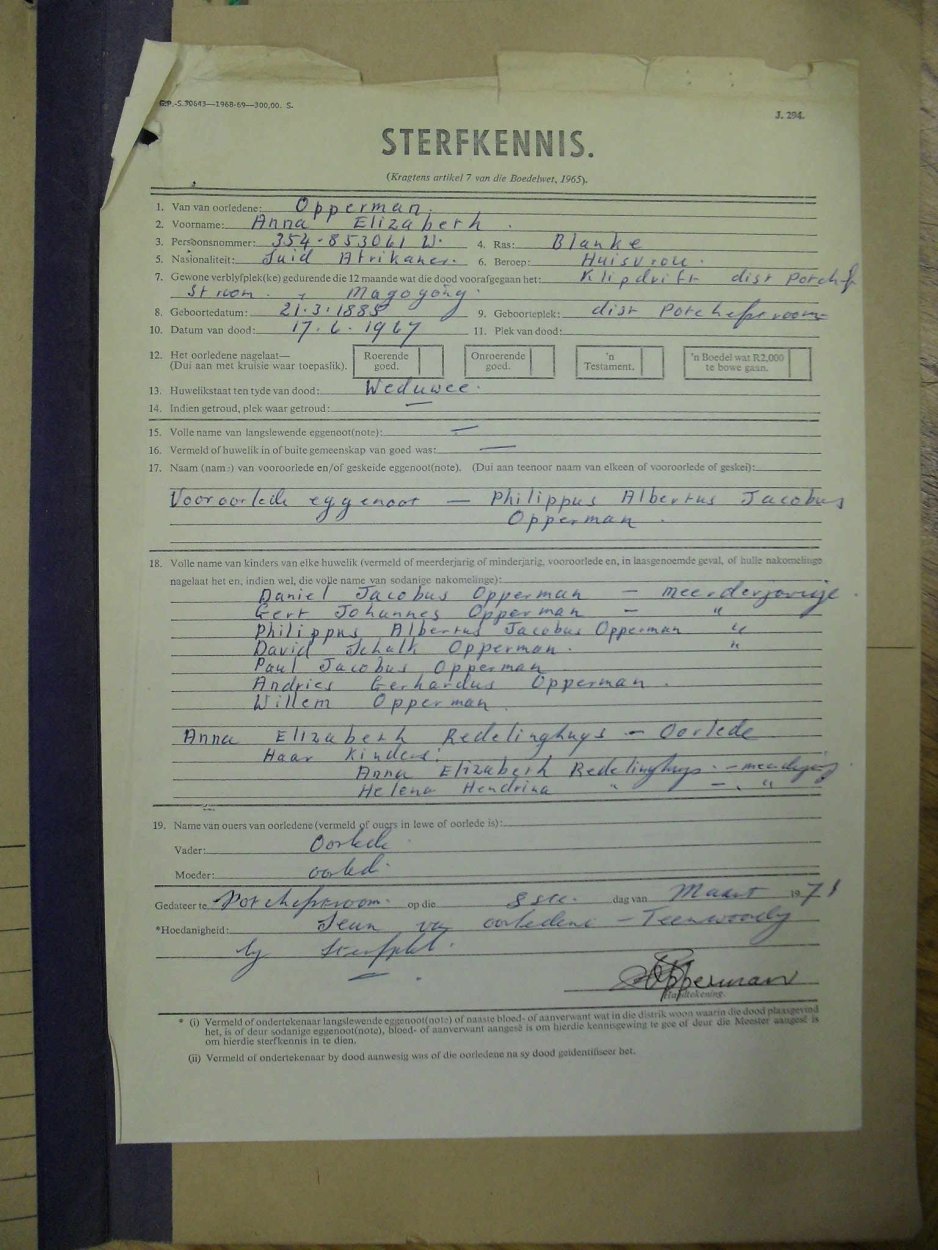 G.P.-S.30643—1968-69—300,00. S.
J. 294.
STERFKENNIS.
(Kragtens artikel 7 van die Boedelwet, 1965).
1. Van van oorledene: Opperman.
2. Voorname: Anna Elizabeth.
3. Persoonsnommer: 354-853061 W. 4. Ras: Blanke
5. Nasionaliteit: Suid Afrikaner. 6. Beroep: Huisvrou.
7. Gewone verblyfplek(ke) gedurende die 12 maande wat die dood voorafgegaan het: Klipdrift dist Potchef
stroom. Magogong.
8. Geboortedatum: 21.3.1885 9. Geboorteplek: dist Potchefstroom
10. Datum van dood: 17.6.1967 11. Plek van dood:
12. Het oorledene nagelaat— Roerende Onroerende 'n 'n Boedel wat R2,000
(Dui aan met kruisie waar toepaslik). goed. goed. Testament. te bowe gaan.
13. Huwelikstaat ten tyde van dood: Weduwee.
14. Indien getroud, plek waar getroud: —
15. Volle name van langslewende eggenoot(note): —
16. Vermeld of huwelik in of buite gemeenskap van goed was: —
17. Naam (name) van vooroorlede en/of geskeide eggenoot(note). (Dui aan teenoor naam van elkeen of vooroorlede of geskei):
Vooroorlede eggenoot — Philippus Albertus Jacobus
Opperman.
18. Volle name van kinders van elke huwelik (vermeld of meerderjarig of minderjarig, vooroorlede en, in laasgenoemde geval, of hulle nakomelinge
nagelaat het en, indien wel, die volle name van sodanige nakomelinge):
Daniel Jacobus Opperman — meerderjarige.
Gert Johannes Opperman — "
Philippus Albertus Jacobus Opperman "
David Schalk Opperman. "
Paul Jacobus Opperman
Andries Gerhardus Opperman.
Willem Opperman.
Anna Elizabeth Redelinghuys — Oorlede
Haar Kinders:
Anna Elizabeth Redelinghuys. — meerderjarig
Helena Hendrina " — . "
19. Name van ouers van oorledene (vermeld of ouers in lewe of oorlede is):
Vader: Oorlede.
Moeder: oorlede.
Gedateer te Potchefstroom. op die 8ste. dag van Maart 1971
*Hoedanigheid: Seun van oorledene — Teenwoordig
by sterfplek.
Opperman
Handtekening.
* (i) Vermeld of ondertekenaar langslewende eggenoot(note) of naaste bloed- of aanverwant wat in die distrik woon waarin die dood plaasgevind
het, is of deur sodanige eggenoot(note), bloed- of aanverwant aangesê is om hierdie kennisgewing te gee of deur die Meester aangesê is
om hierdie sterfkennis in te dien.
(ii) Vermeld of ondertekenaar by dood aanwesig was of die oorledene na sy dood geïdentifiseer het.